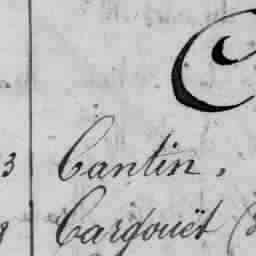 C
3 Cantin.
9 Cargouët (